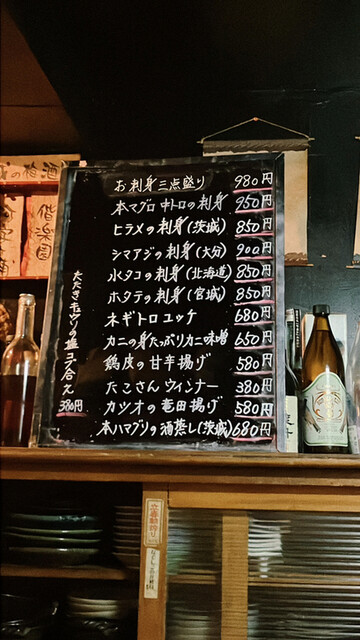 お刺身三点盛り 980円
本マグロ 中トロの刺身 950円
ヒラメの刺身(茨城) 850円
シマアジの刺身(大分) 900円
水タコの刺身(北海道) 850円
ホタテの刺身(宮城) 850円
ネギトロユッケ 680円
カニの身たっぷりカニ味噌 650円
鶏皮の甘辛揚げ 580円
たこさんウィンナー 380円
カツオの竜田揚げ 580円
本ハマグリの酒蒸し(茨城) 680円
たたきキュウリの塩コブ合え
380円
の梅酒
偕楽園